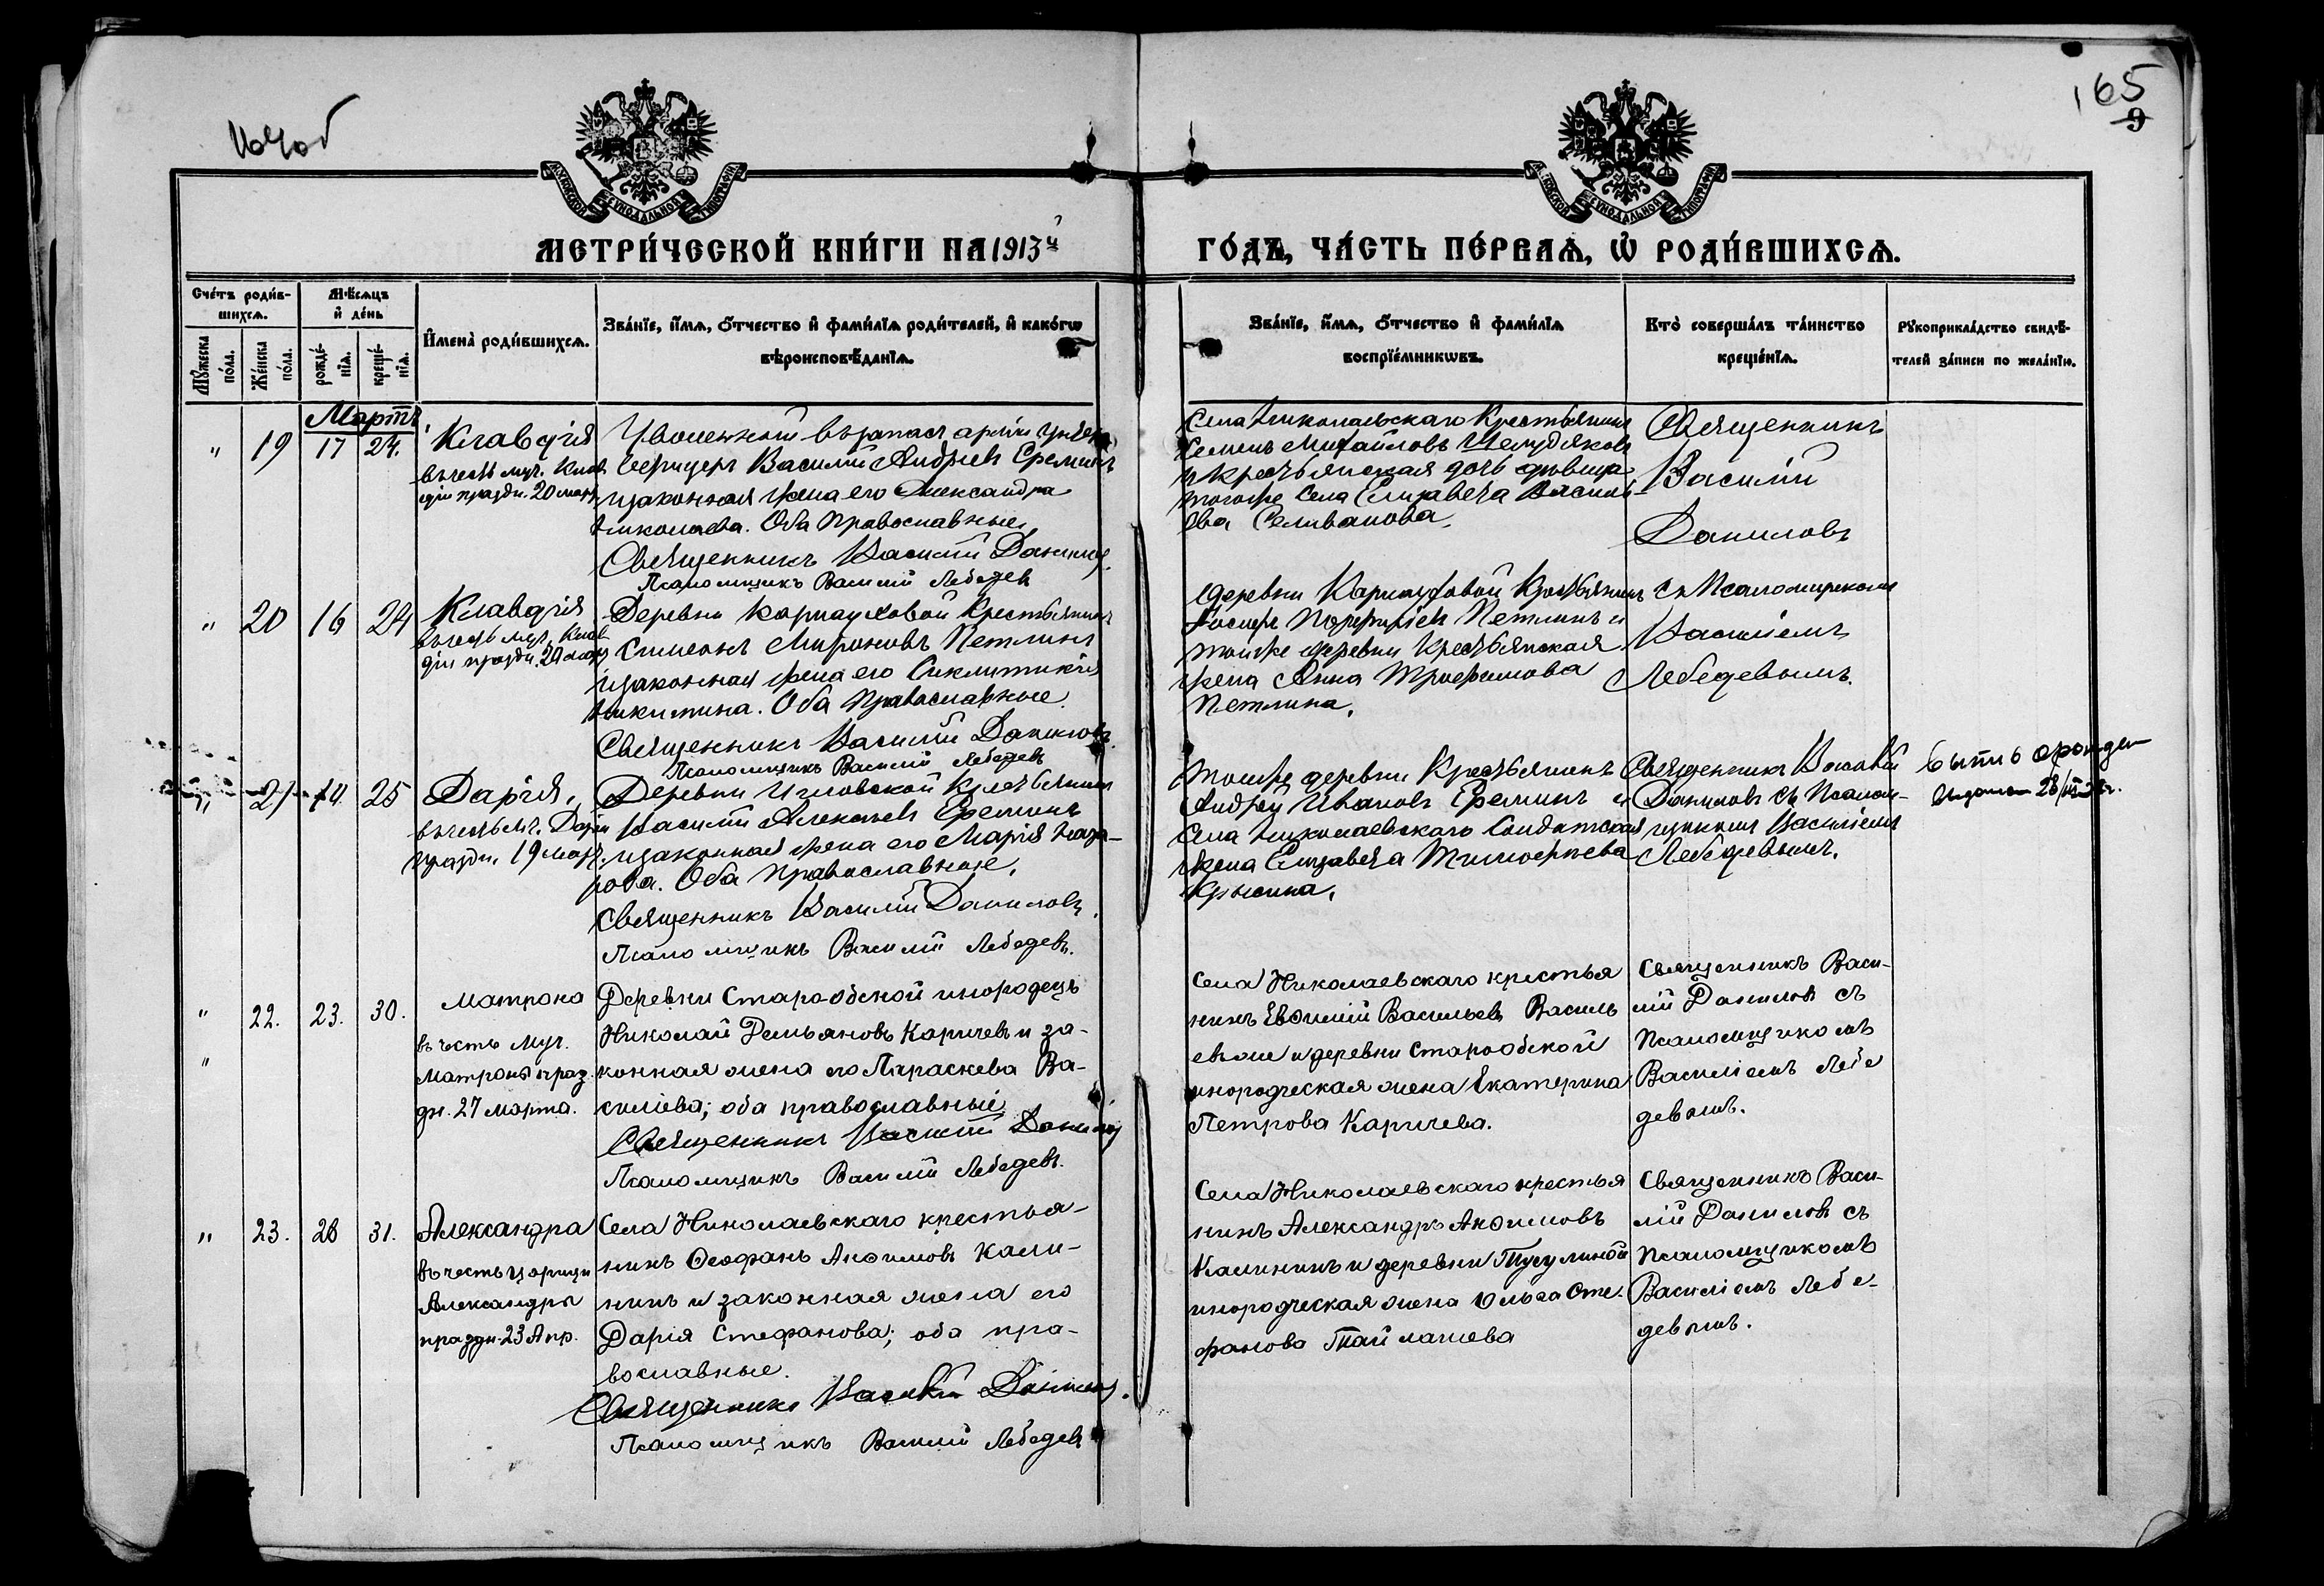 165
9
МЕТРИ́ЧЕСКОЙ КНИ́ГИ НА 1913й
ГО́ДЪ, ЧА́СТЬ ПЕ́РВАѦ, Ѡ РОДИ́ВШИХСѦ.
Сче́тъ роди́в-
шихсѧ.
Мѣ́сѧцъ
и де́нь
Мꙋ́жеска
по́ла.
Же́нска
по́ла.
рожде́-
нїѧ.
креще́-
нїѧ.
Имена̀ роди́вшихсѧ.
Зва́нїе, и́мѧ, ѻ́тчество и фами́лїѧ роди́телей, и како́гѡ
вѣроисповѣ́данїѧ.
Зва́нїе, и́мѧ, ѻ́тчество и фами́лїѧ
воспрїе́мникѡвъ.
Кто̀ соверша́лъ та́инство
креще́нїѧ.
Рꙋкоприкла́дство свидѣ́-
телей за́писи по жела́нїю.
Мартъ
" 19 17 24.
Клавдія
въ честь муч. Клав
діи праздн. 20 март.
Уволенный въ запасъ арміи унтеръ
Офицеръ Василій Андреевъ Ереминъ
и законная жена его Александра
Николаева. Оба православные.
Священникъ Василій Даниловъ.
Псаломщикъ Василій Лебедевъ
Села Николаевскаго Крестьянинъ
Семенъ Михайловъ
и Крестьянская дочь девица
тогоже села Елизавета Василь-
ева Селиванова.
Священникъ
Василій
Даниловъ
" 20 16 24
Клавдія
въ честь муч. Клав
діи праздн. 20 март
Деревни Кармацковой Крестьянинъ
Симеонъ Мироновъ Петлинъ
и законная жена его Синклитикія
Никитина. Оба Православные.
Священникъ Василій Даниловъ.
Псаломщикъ Василій Лебедевъ
деревни Кармацковой Крестьянинъ
Петлинъ и
тойже деревни Крестьянская
жена Анна Трофимова
Петлина.
съ Псаломщикомъ
Василіемъ
Лебедевымъ.
" 21 14 25
Дарія,
въ честь мч. Даріи
праздн. 19 март.
Деревни Крестьянинъ
Василій Алексеевъ Ереминъ
и законная жена его Марія Наза-
рова. Оба Православные.
Священникъ Василій Даниловъ.
Псаломщикъ Василій Лебедевъ.
тойже деревни Крестьянинъ
Андрей Ивановъ Ереминъ и
Села Николаевскаго Солдатская
жена Елизавета Тимофеева
Крысина.
Священникъ Василій
Даниловъ съ Псалом-
щикомъ Василіемъ
Лебедевымъ.
" 22. 23. 30.
"
Матрона
въ честь муч.
Матроны праз
дн. 27 марта.
Деревни Старообской инородецъ
Николай Демьяновъ Каричевъ и за-
конная жена его Параскева Ва-
силіева; оба православные
Священникъ Василій Даниловъ
Псаломщикъ Василій Лебедевъ.
Села Николаевскаго крестья
нинъ Евѳимій Васильевъ Василь
евыхъ и деревни Старообской
инородческая жена Екатерина
Петрова Каричева.
Священникъ Васи-
лій Даниловъ съ
Псаломщикомъ
Василіемъ Лебе
девымъ.
" 23. 28 31.
Александра
въ честь царицы
Александры
праздн. 23 Апр.
Села Николаевскаго крестья-
нинъ Ѳеофанъ Анѳимовъ Кали-
нинъ и законная жена его
Дарія Стефанова; оба пра-
вославные.
Священникъ Василій Даниловъ.
Псаломщикъ Василій Лебедевъ
Села Николаевскаго крестья
нинъ Александръ Анѳимовъ
Калининъ и деревни
инородческая жена Ольга Сте-
фанова
Священникъ Васи-
лій Даниловъ съ
Псаломщикомъ
Василіемъ Лебе-
девымъ.